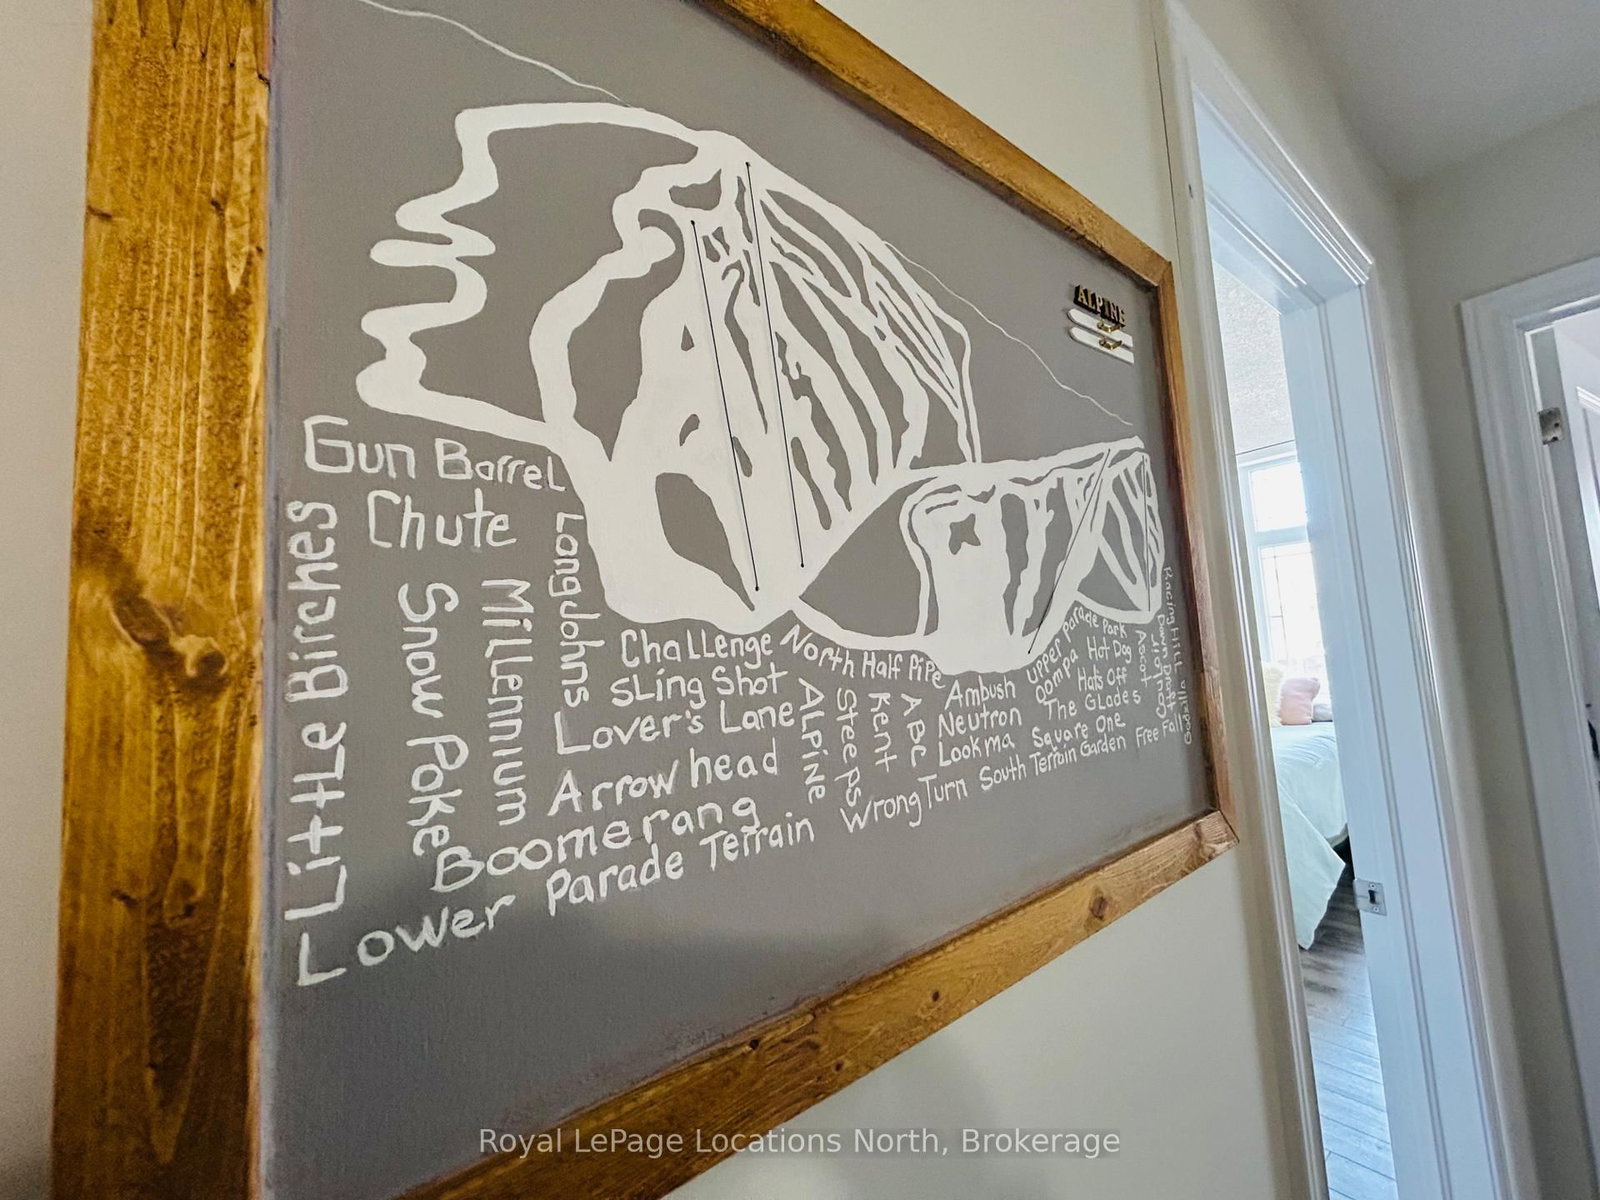 ALPINE
Gun Barrel
Chute
Little Birches
Snow Poke
Millennium
Long Johns
Challenge
Sling Shot
Lover's Lane
Arrowhead
Boomerang
Lower Parade Terrain
North Half Pipe
ALPiNe
Steeps
Kent
ABC
Ambush
Neutron
Lookma
Wrong Turn
Upper Parade Park
Oompa
Hot Dog
Hats Off
The Glades
Square One
South Terrain Garden
Ascot
Free Fall
Racing Hill
Royal LePage Locations North, Brokerage